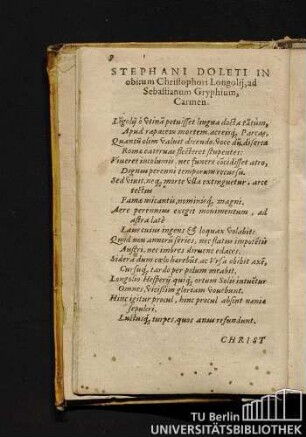 STEPHANI DOLETI IN
obitum Christophori Longolij, ad
Sebastianum Gryphium,
Carmen.
Lõgolij ô Vtinã potuisset lingua docta tãtùm,
Apud rapacem mortem, acresq́; Parcas,
Quantũ olim Valuit dicendo, Voce
Romæ cateruas flecteret stupentes:
Viueret incolumis, nec funere cũcidisset atro,
Dignum perenni temporum recursu.
Sed Viuit, neq; morte Vlla extinguetur, arce
tectus
Fama micantis, nominisq́; magni.
Aere perennius exegit monimentum, ad
astra latè
Laus cuius ingens & loquax Volabit:
Quòd non annorũ series, nec flatus impotẽtis
Austri, nec imbres diruent edaces.
Sidera dum cælo harebũt, ac Vrsa obibit axẽ,
Cursuq́; tardo per polum meabit,
Longolio Hesperij, quiq́; ortum Solis intuẽtur
Omnes, Vicissim gloriam Vouebunt.
Hinc igitur procul, hinc procul absint nænia
sepulcri,
Luctusq́; turpes, quos anus refundunt.
CHRIST
TU Berlin
UNIVERSITÄTSBIBLIOTHEK